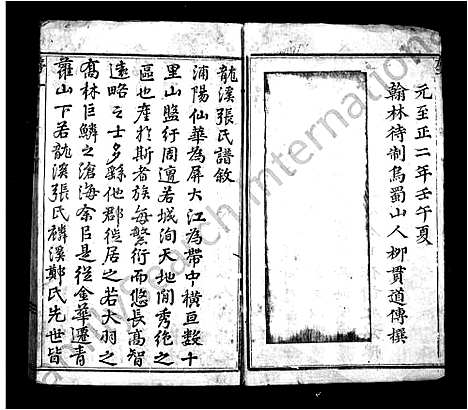 元至正二年壬午夏
翰林待制烏蜀山人柳貫道傳撰
龍溪張氏譜敘
浦陽仙華為屏大江為帶中橫亘数十
里山盤行周遭若城洵天地間秀絶之
區也产於斯者族每繁衍而悠長高智
遠略之士多繇他郡徙居之若大羽之
喬林巨鱗之滄海余官是從金華遷青
蘿山下若龍溪張氏麟溪鄭氏先世皆